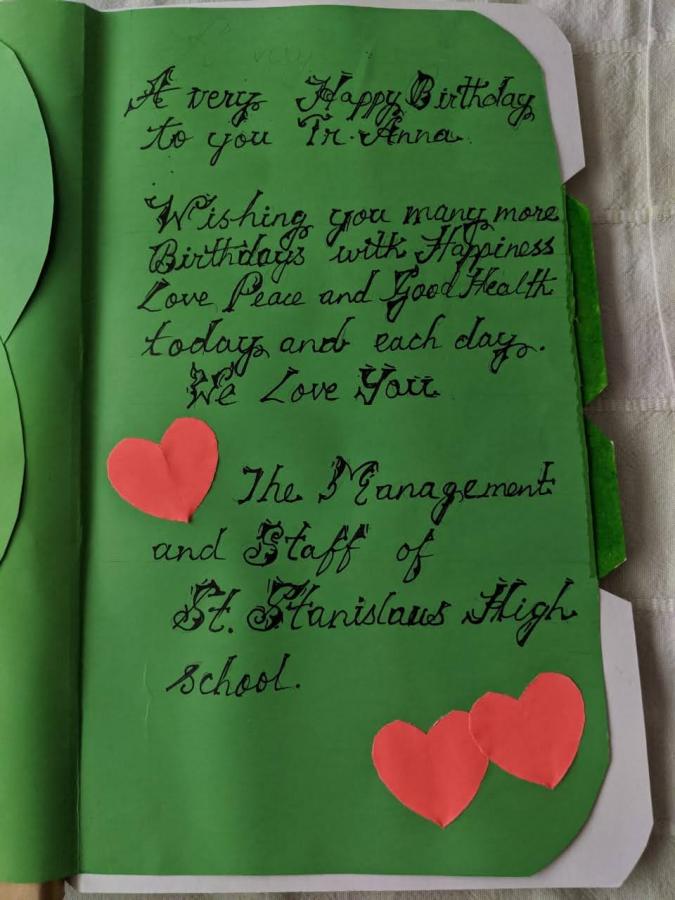 A very Happy Birthday
to you Tr. Anna.
Wishing you many more
Birthdays with Happiness
Love Peace and Good Health
today and each day.
We Love You
The Management
and Staff of
St. Stanislaus High
school.